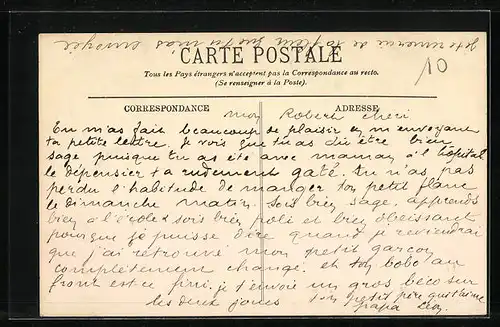 Je te remercie de ta fleur que tu m'as envoyée
CARTE POSTALE
10
Tous les Pays étrangers n'acceptent pas la Correspondance au recto.
(Se renseigner à la Poste).
CORRESPONDANCE
ADRESSE
mon Robert cheri
Tu m'as fait beaucoup de plaisir en m'envoyant
ta petite lettre. Je vois que tu as du être bien
sage puisque tu as été avec maman à l'hôpital
le dépensier t'a rudement gaté. Tu n'as pas
perdu l'habitude de manger ton petit flanc
le dimanche matin. Sois bien sage, apprends
bien à l'école sois bien poli et bien obeissant
pour que je puisse dire quand je reviendrai
que j'ai retrouvé mon petit garçon
complètement changé. et ton bobo au
front est ce fini. je t'envoie un gros béco sur
les deux joues ton petit père qui t'aime
papa Léon